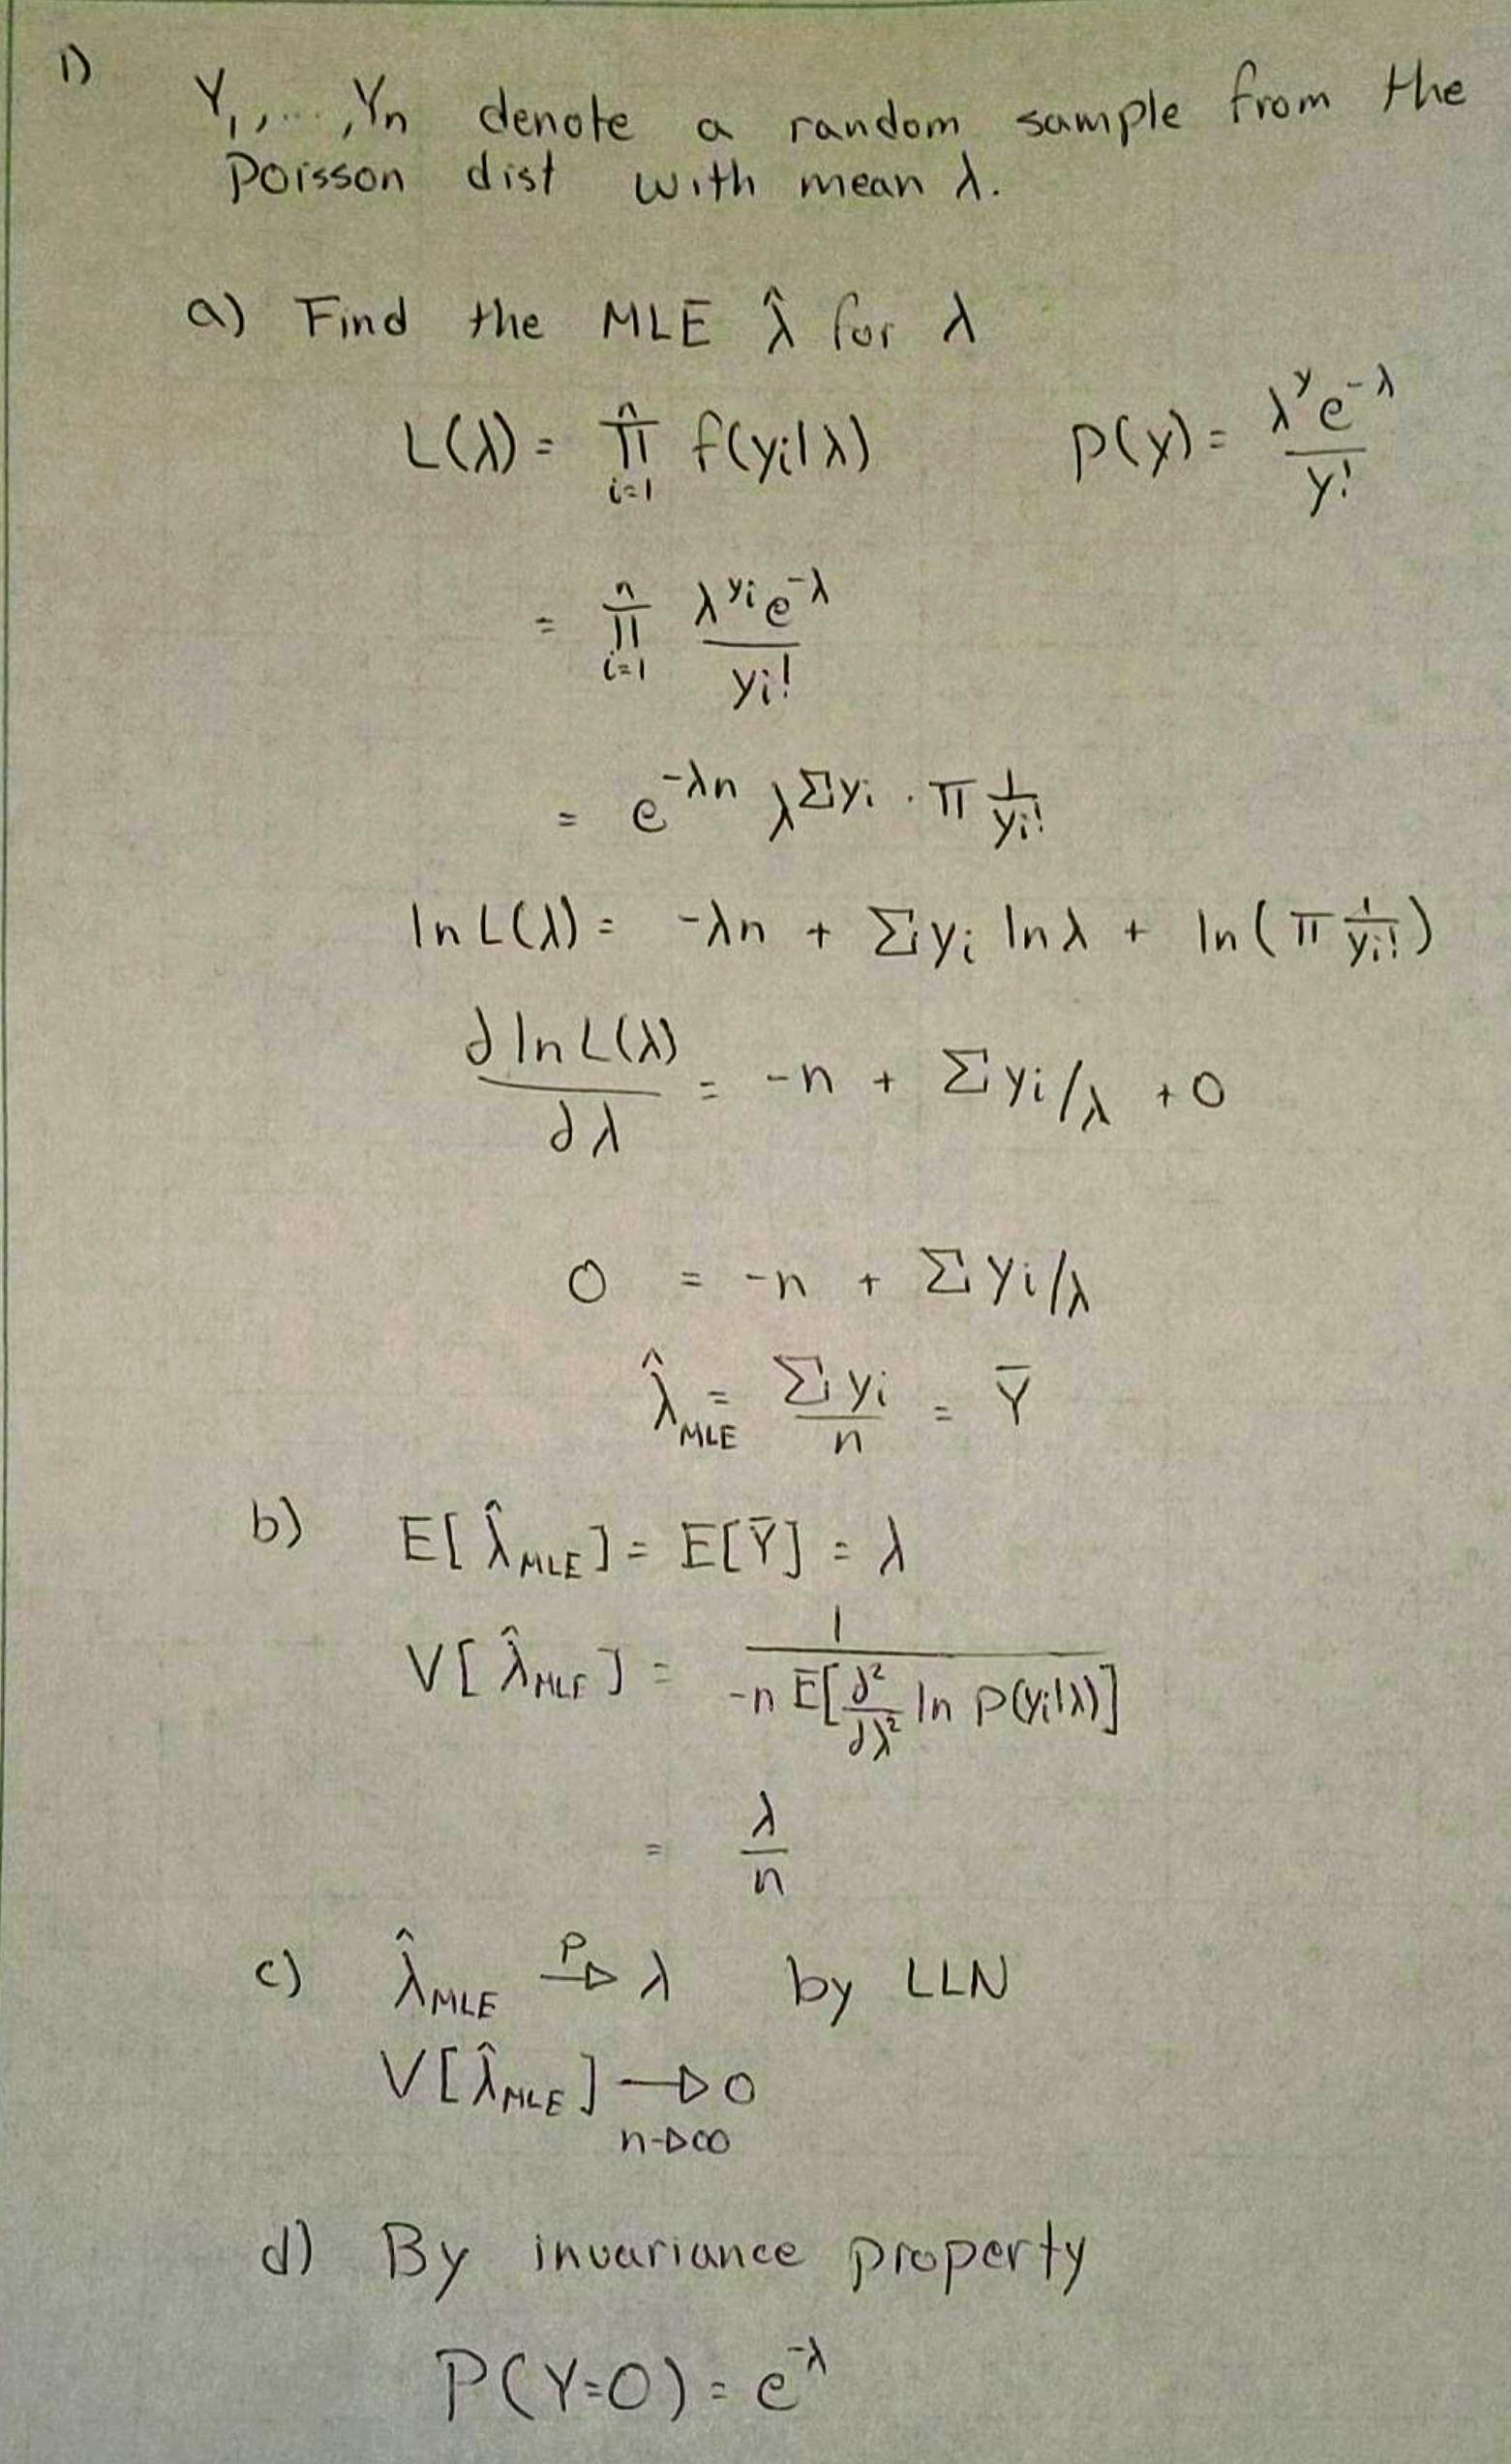 1)
Y₁, ... ,Yn denote a random sample from the
Poisson dist with mean λ.
a) Find the MLE λ̂ for λ
L(λ) = ∏_{i=1}^{n} f(yi|λ)    P(y) = λ^y e^{-λ} / y!
= ∏_{i=1}^{n} λ^{yi} e^{-λ} / yi!
= e^{-λn} λ^{Σyi} · π 1/yi!
ln L(λ) = -λn + Σyi lnλ + ln(π 1/yi!)
∂ ln L(λ) / ∂λ = -n + Σyi/λ + 0
0 = -n + Σyi/λ
λ̂_MLE = Σyi / n = Ȳ
b) E[λ̂_MLE] = E[Ȳ] = λ
V[λ̂_MLE] = 1 / -n E[∂²/∂λ² ln P(yi|λ)]
= λ/n
c) λ̂_MLE →^P λ by LLN
V[λ̂_MLE] → 0
n→∞
d) By invariance property
P(Y=0) = e^{-λ}